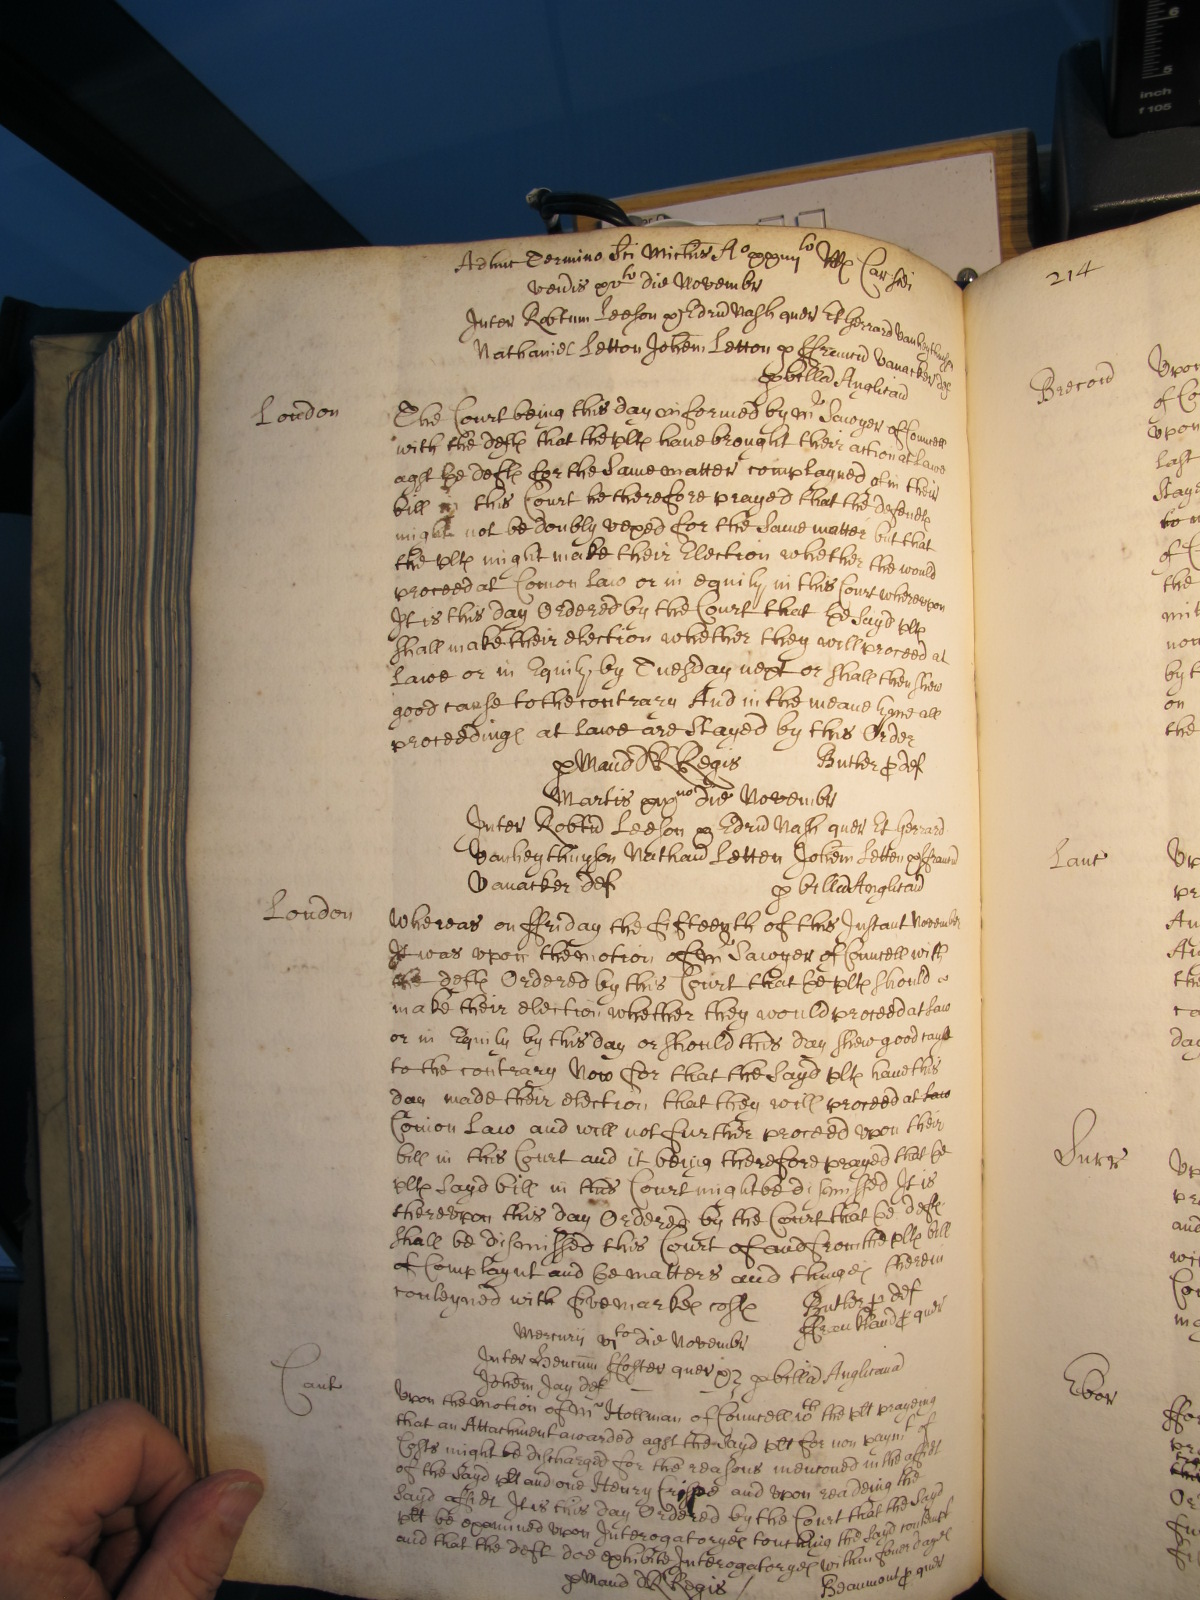 Adhuc Termino Sci Michis Ao xxiiijto Rx Car Sedi
veneris xvto die Novembr
Inter Robtum Leeson & Edrum Nash quer Et Gerrard Vanheythuysen
Nathaniel Letton Johem Letton & ffrancid Vanacker def
p billa Anglicad
London
The Court being this day informed by mr Sawyer of Councell
with the deftx that the pltx have brought their action at Lawe
agst ye deftx for the same matter complayned of in their
bill in this Court he therefore prayed that the defendtx
might not be doubly vexed for the same matter but that
the pltx might make their Election whether the would
proceed at Comon Law or in equity in this Court whereupon
It is this day Ordered by the Court that ye Sayd pltx
shall make their election whether they will proceed at
Lawe or in Equity by Tuesday next or shall then shew
good cause to the contrary And in the meane tyme all
proceedings at Lawe are Stayed by this Order
p Mand Regis Butler p def
Martis xixno die Novembr
Inter Robtum Leeson & Edrum Nash quer Et Gerrard
Vanheythuyson Nathaniel Letten Johem Letten & ffrancid
Vanacker def p billa Anglicad
London
Whereas on ffriday the fifteenth of this Instant November
It was upon the motion of mr Sawyer of Councell with
the deftx Ordered by this Court that ye pltx should
make their election whether they would proceed at Law
or in Equity by this day or should this day shew good cause
to the contrary Now for that the Sayd pltx have this
day made their election that they will proceed at Law
Comon Law and will not further proceed upon their
bill in this Court and it being therefore prayed that ye
pltx Sayd bill in this Court might be dismissed It is
thereupon this day Ordered by the Court that ye deftx
shall be dismissed this Court of and from the pltx bill
of Complaynt and ye matters and things therein
conteyned with five markes costx Butler p def
ffrankland p quer
Mercurij vjto die November
Inter Henricum ffoster quer p billa Anglicana
Johem Jay def
Cant
Upon the motion of Mr Hollman of Councell wth the plt prayeing
that an Attachment awarded agst the Sayd plt for non paymt of
Costs might be discharged for the reasons mencioned in the affidt
of the Sayd plt and one Henry Crispe and upon readeing the
Sayd affidt It is this day Ordered by the Court that the Sayd
plt be examined upon Interogatoryes touching the Sayd contempt
and that the deft doe exhibite Interogatoryes within fower dayes
p Mand Regis Beaumont p quer
214
Brecond
Upon
of Co
upon
last
Stay
to
of C
the
mit
now
by t
on
the
Lanc
Surr
and
wit
Ebor